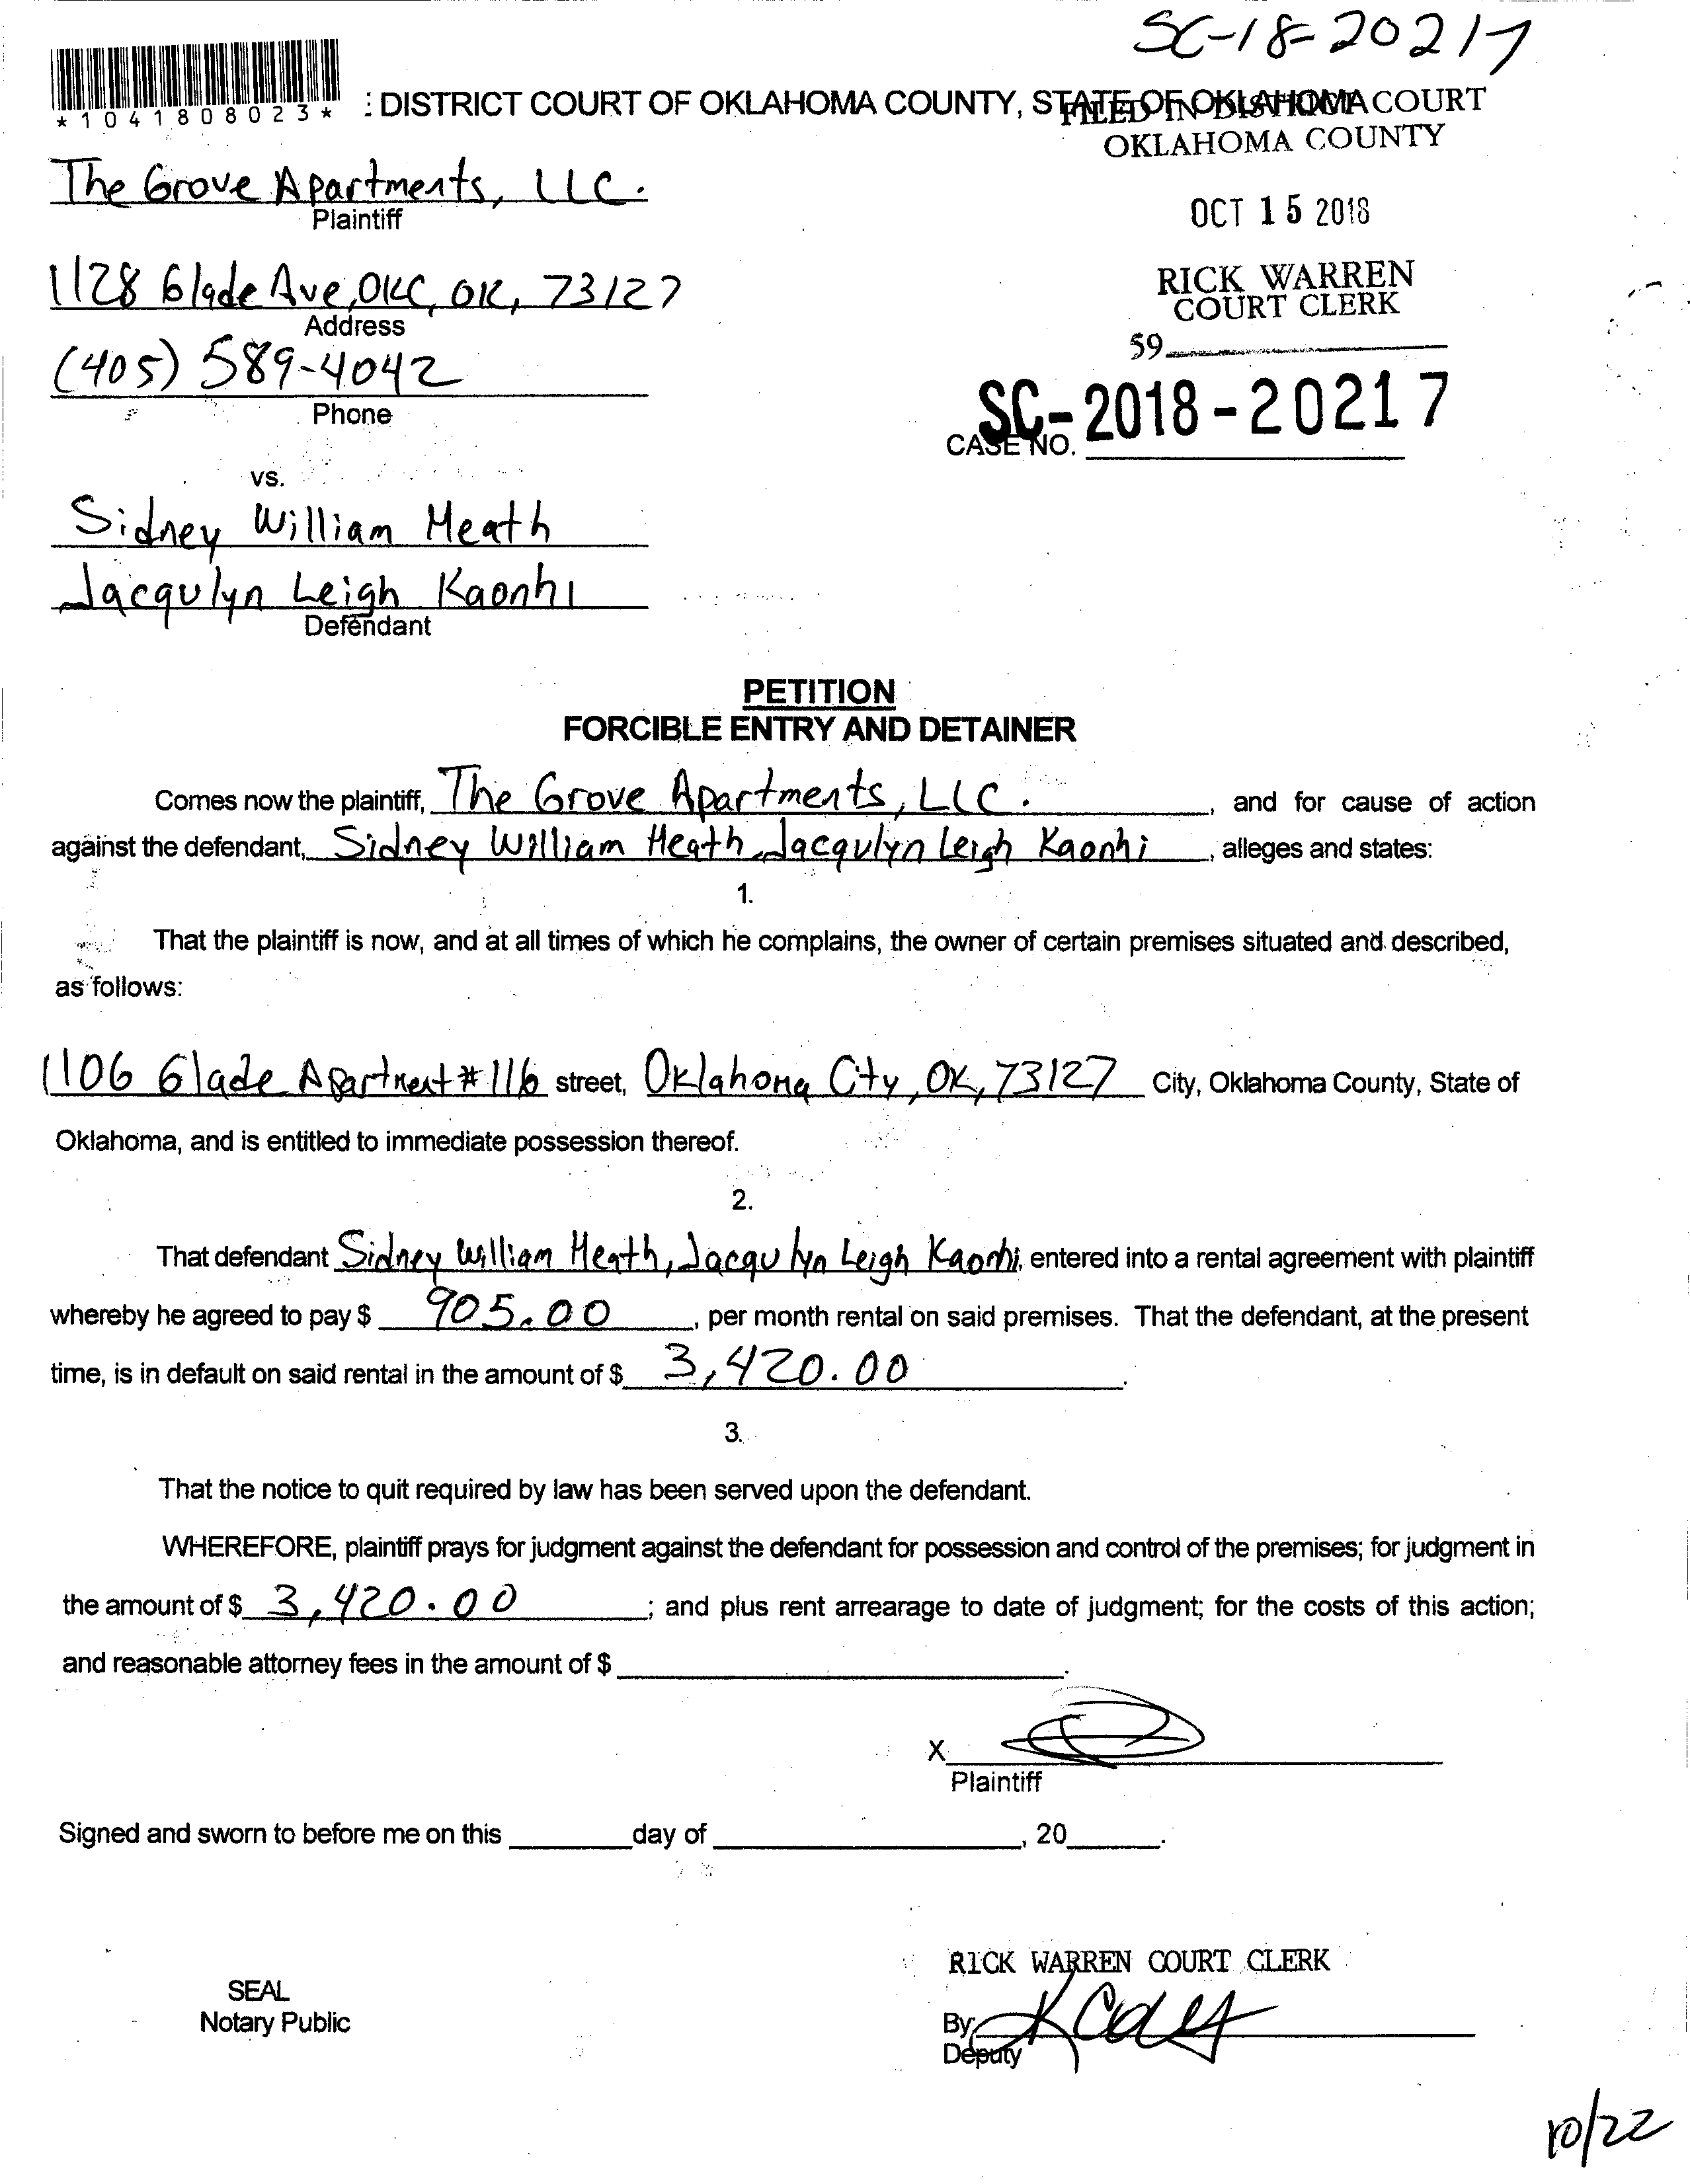 SC-18-20217
*1041808023*
: DISTRICT COURT OF OKLAHOMA COUNTY, STATE OF OKLAHOMA
FILED IN DISTRICT COURT
OKLAHOMA COUNTY
The Grove Apartments, LLC.
Plaintiff
OCT 15 2018
1128 Glade Ave, OKC, OK, 73127
Address
RICK WARREN
COURT CLERK
(405) 589-4042
Phone
59
SC-2018-20217
CASE NO.
vs.
Sidney William Heath
Jacqulyn Leigh Kaonhi
Defendant
PETITION
FORCIBLE ENTRY AND DETAINER
Comes now the plaintiff, The Grove Apartments, LLC. , and for cause of action
against the defendant, Sidney William Heath, Jacqulyn Leigh Kaonhi , alleges and states:
1.
That the plaintiff is now, and at all times of which he complains, the owner of certain premises situated and described,
as follows:
1106 Glade Apartment #116 street, Oklahoma City, OK, 73127 City, Oklahoma County, State of
Oklahoma, and is entitled to immediate possession thereof.
2.
That defendant Sidney William Heath, Jacqulyn Leigh Kaonhi, entered into a rental agreement with plaintiff
whereby he agreed to pay $ 905.00 , per month rental on said premises. That the defendant, at the present
time, is in default on said rental in the amount of $ 3,420.00 .
3.
That the notice to quit required by law has been served upon the defendant.
WHEREFORE, plaintiff prays for judgment against the defendant for possession and control of the premises; for judgment in
the amount of $ 3,420.00 ; and plus rent arrearage to date of judgment; for the costs of this action;
and reasonable attorney fees in the amount of $ .
X
Plaintiff
Signed and sworn to before me on this day of , 20 .
RICK WARREN COURT CLERK
SEAL
Notary Public
By
Deputy
10/22